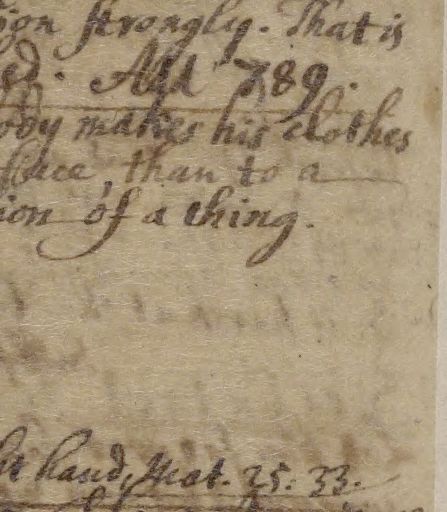 ign strongly. That is
ed. Add 789.
ody makes his clothes
face, than to a
ion of a thing.
ht hand, Mat. 25. 33.